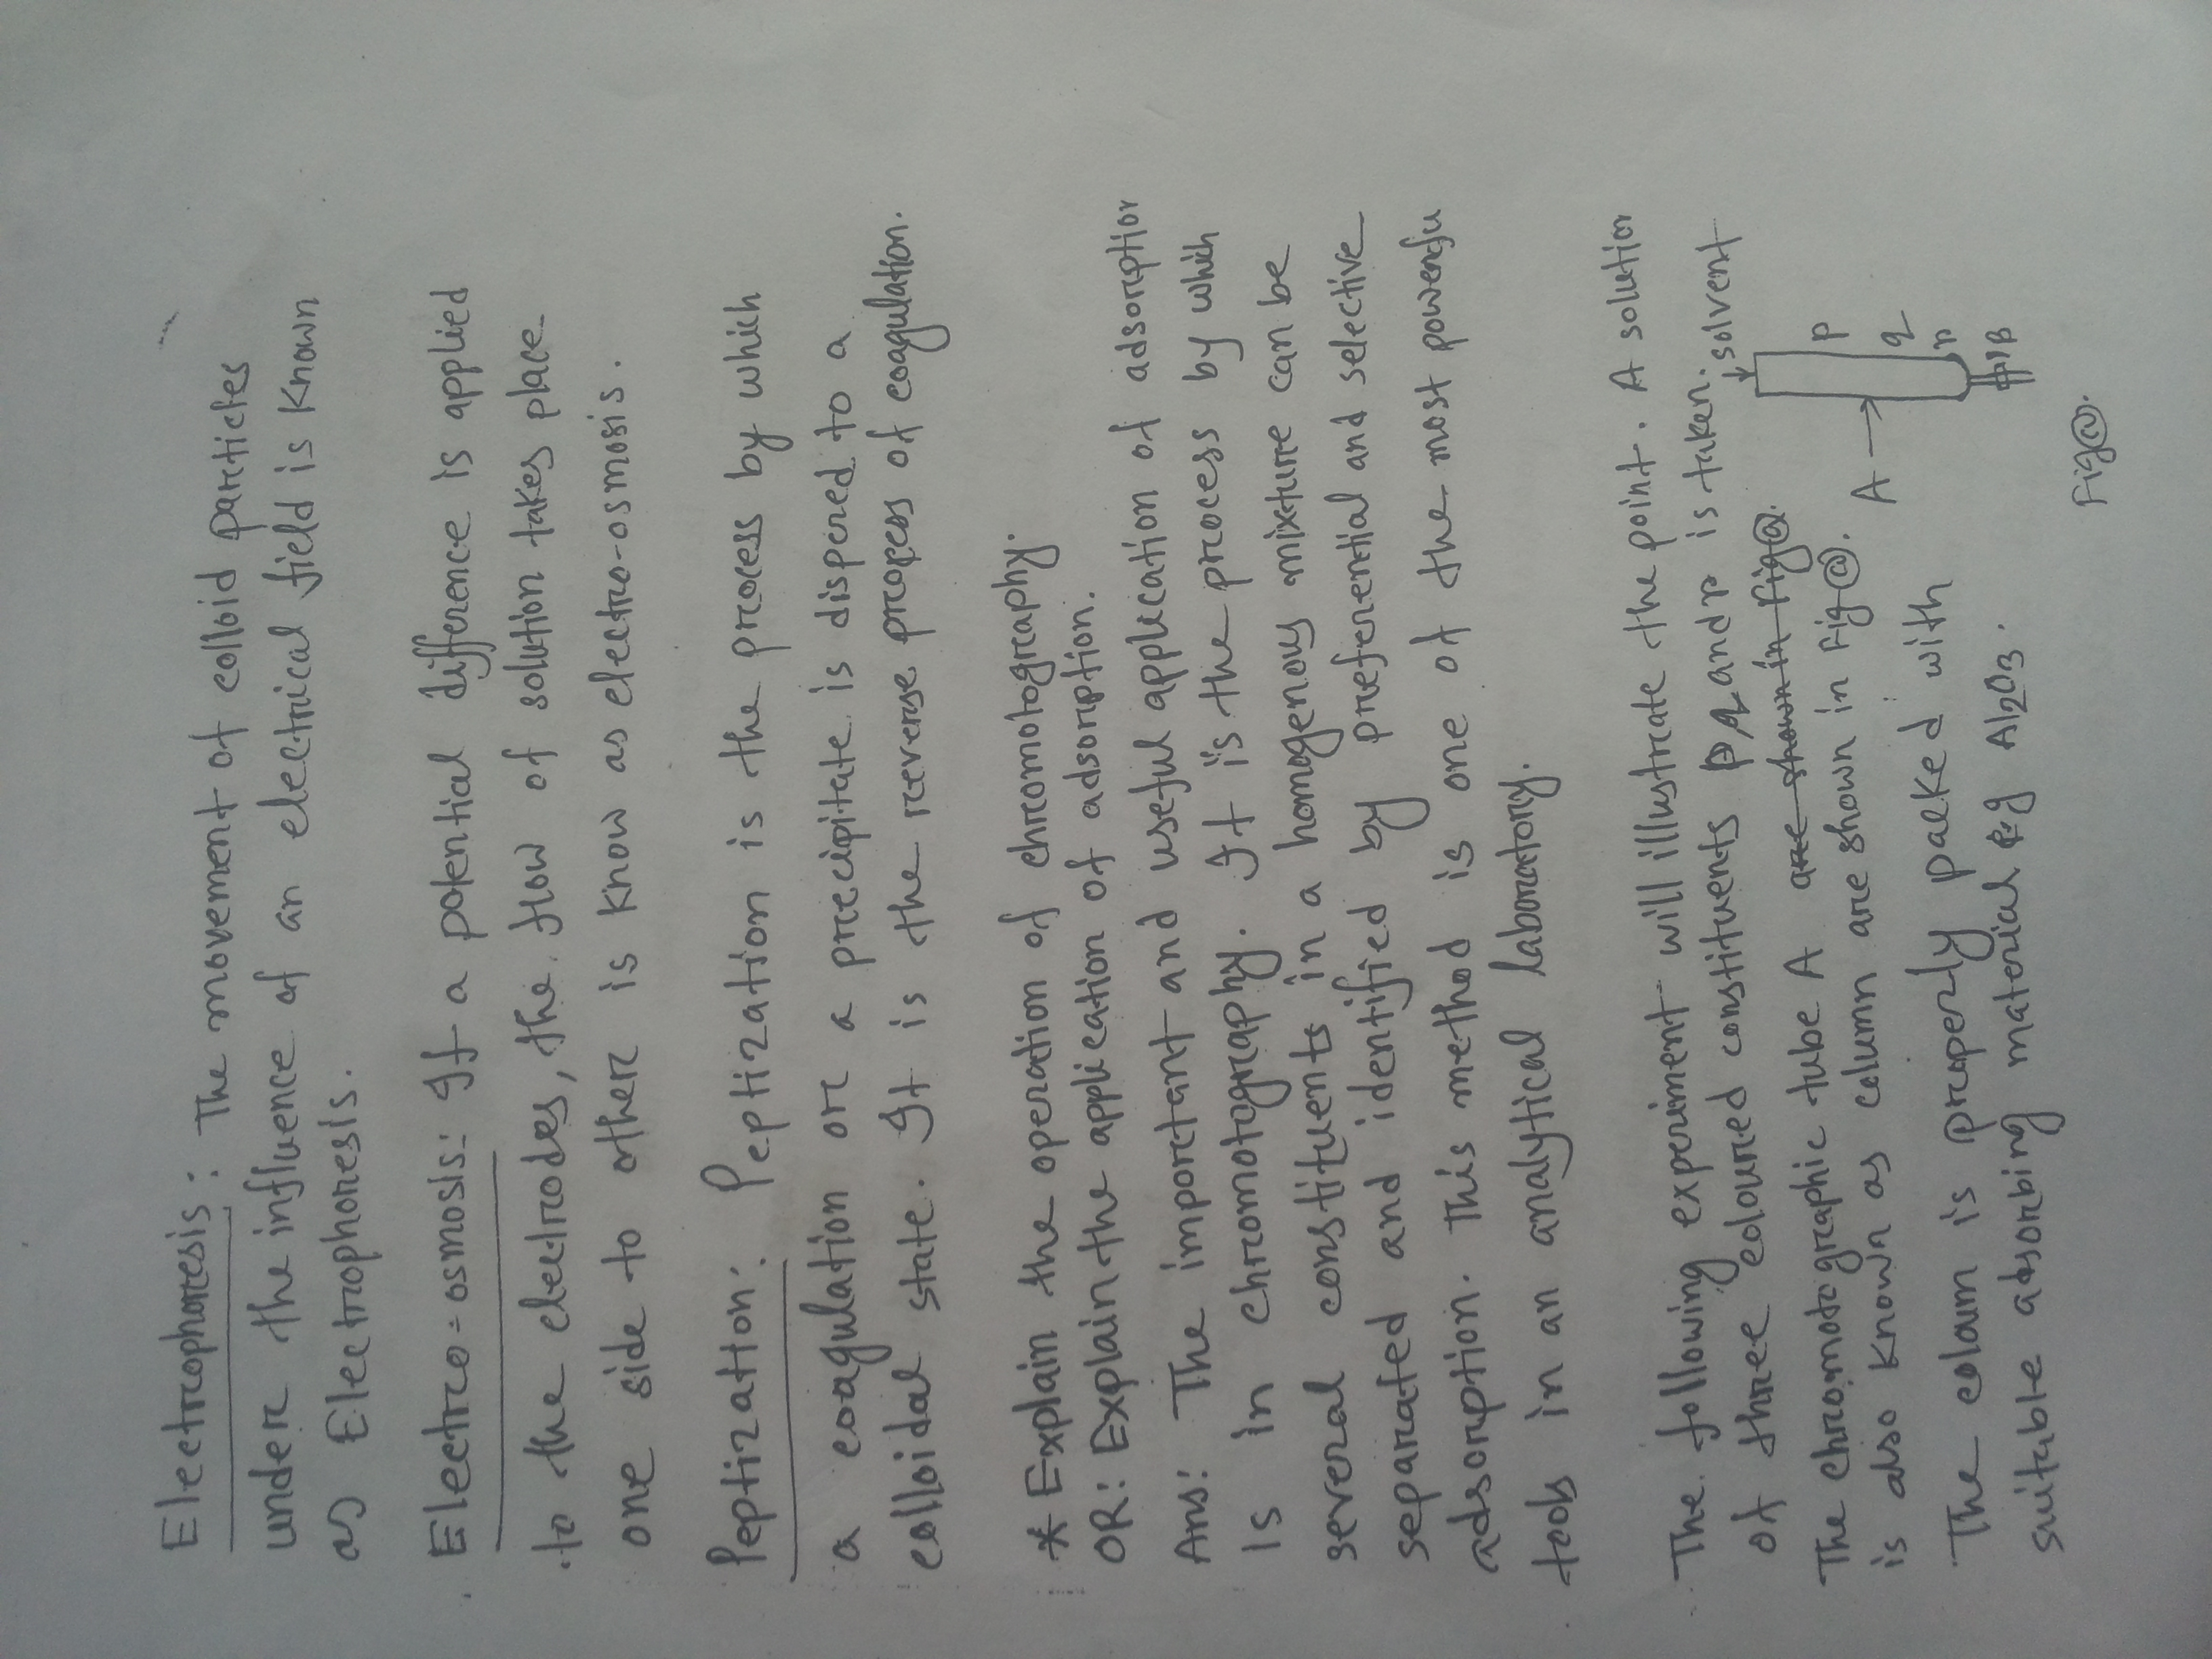 Electrophoresis: The movement of colloid particles
under the influence of an electrical field is known
as Electrophoresis.
Electro-osmosis: If a potential difference is applied
to the electrodes, the flow of solution takes place
one side to other is know as electro-osmosis.
Peptization: Peptization is the process by which
a coagulation or a precipitate is dispered to a
colloidal state. It is the reverse proces of coagulation.
* Explain the operation of chromotography.
OR: Explain the application of adsorption.
Ans: The important and useful application of adsorption
is in chromotography. It is the process by which
several constituents in a homogenous mixture can be
separated and identified by preferential and selective
adsorption. This method is one of the most powerfu
tools in an analytical laboratory.
The following experiment will illustrate the point. A solution
of three coloured constituents p q and r is taken.
solvent
The chromotographic tube A are shown in fig(a).
is also known as column are shown in Fig(a).
The colum is properly paked with
suitable absorbing material eg Al2O3.
A
p
q
r
B
Fig(a).